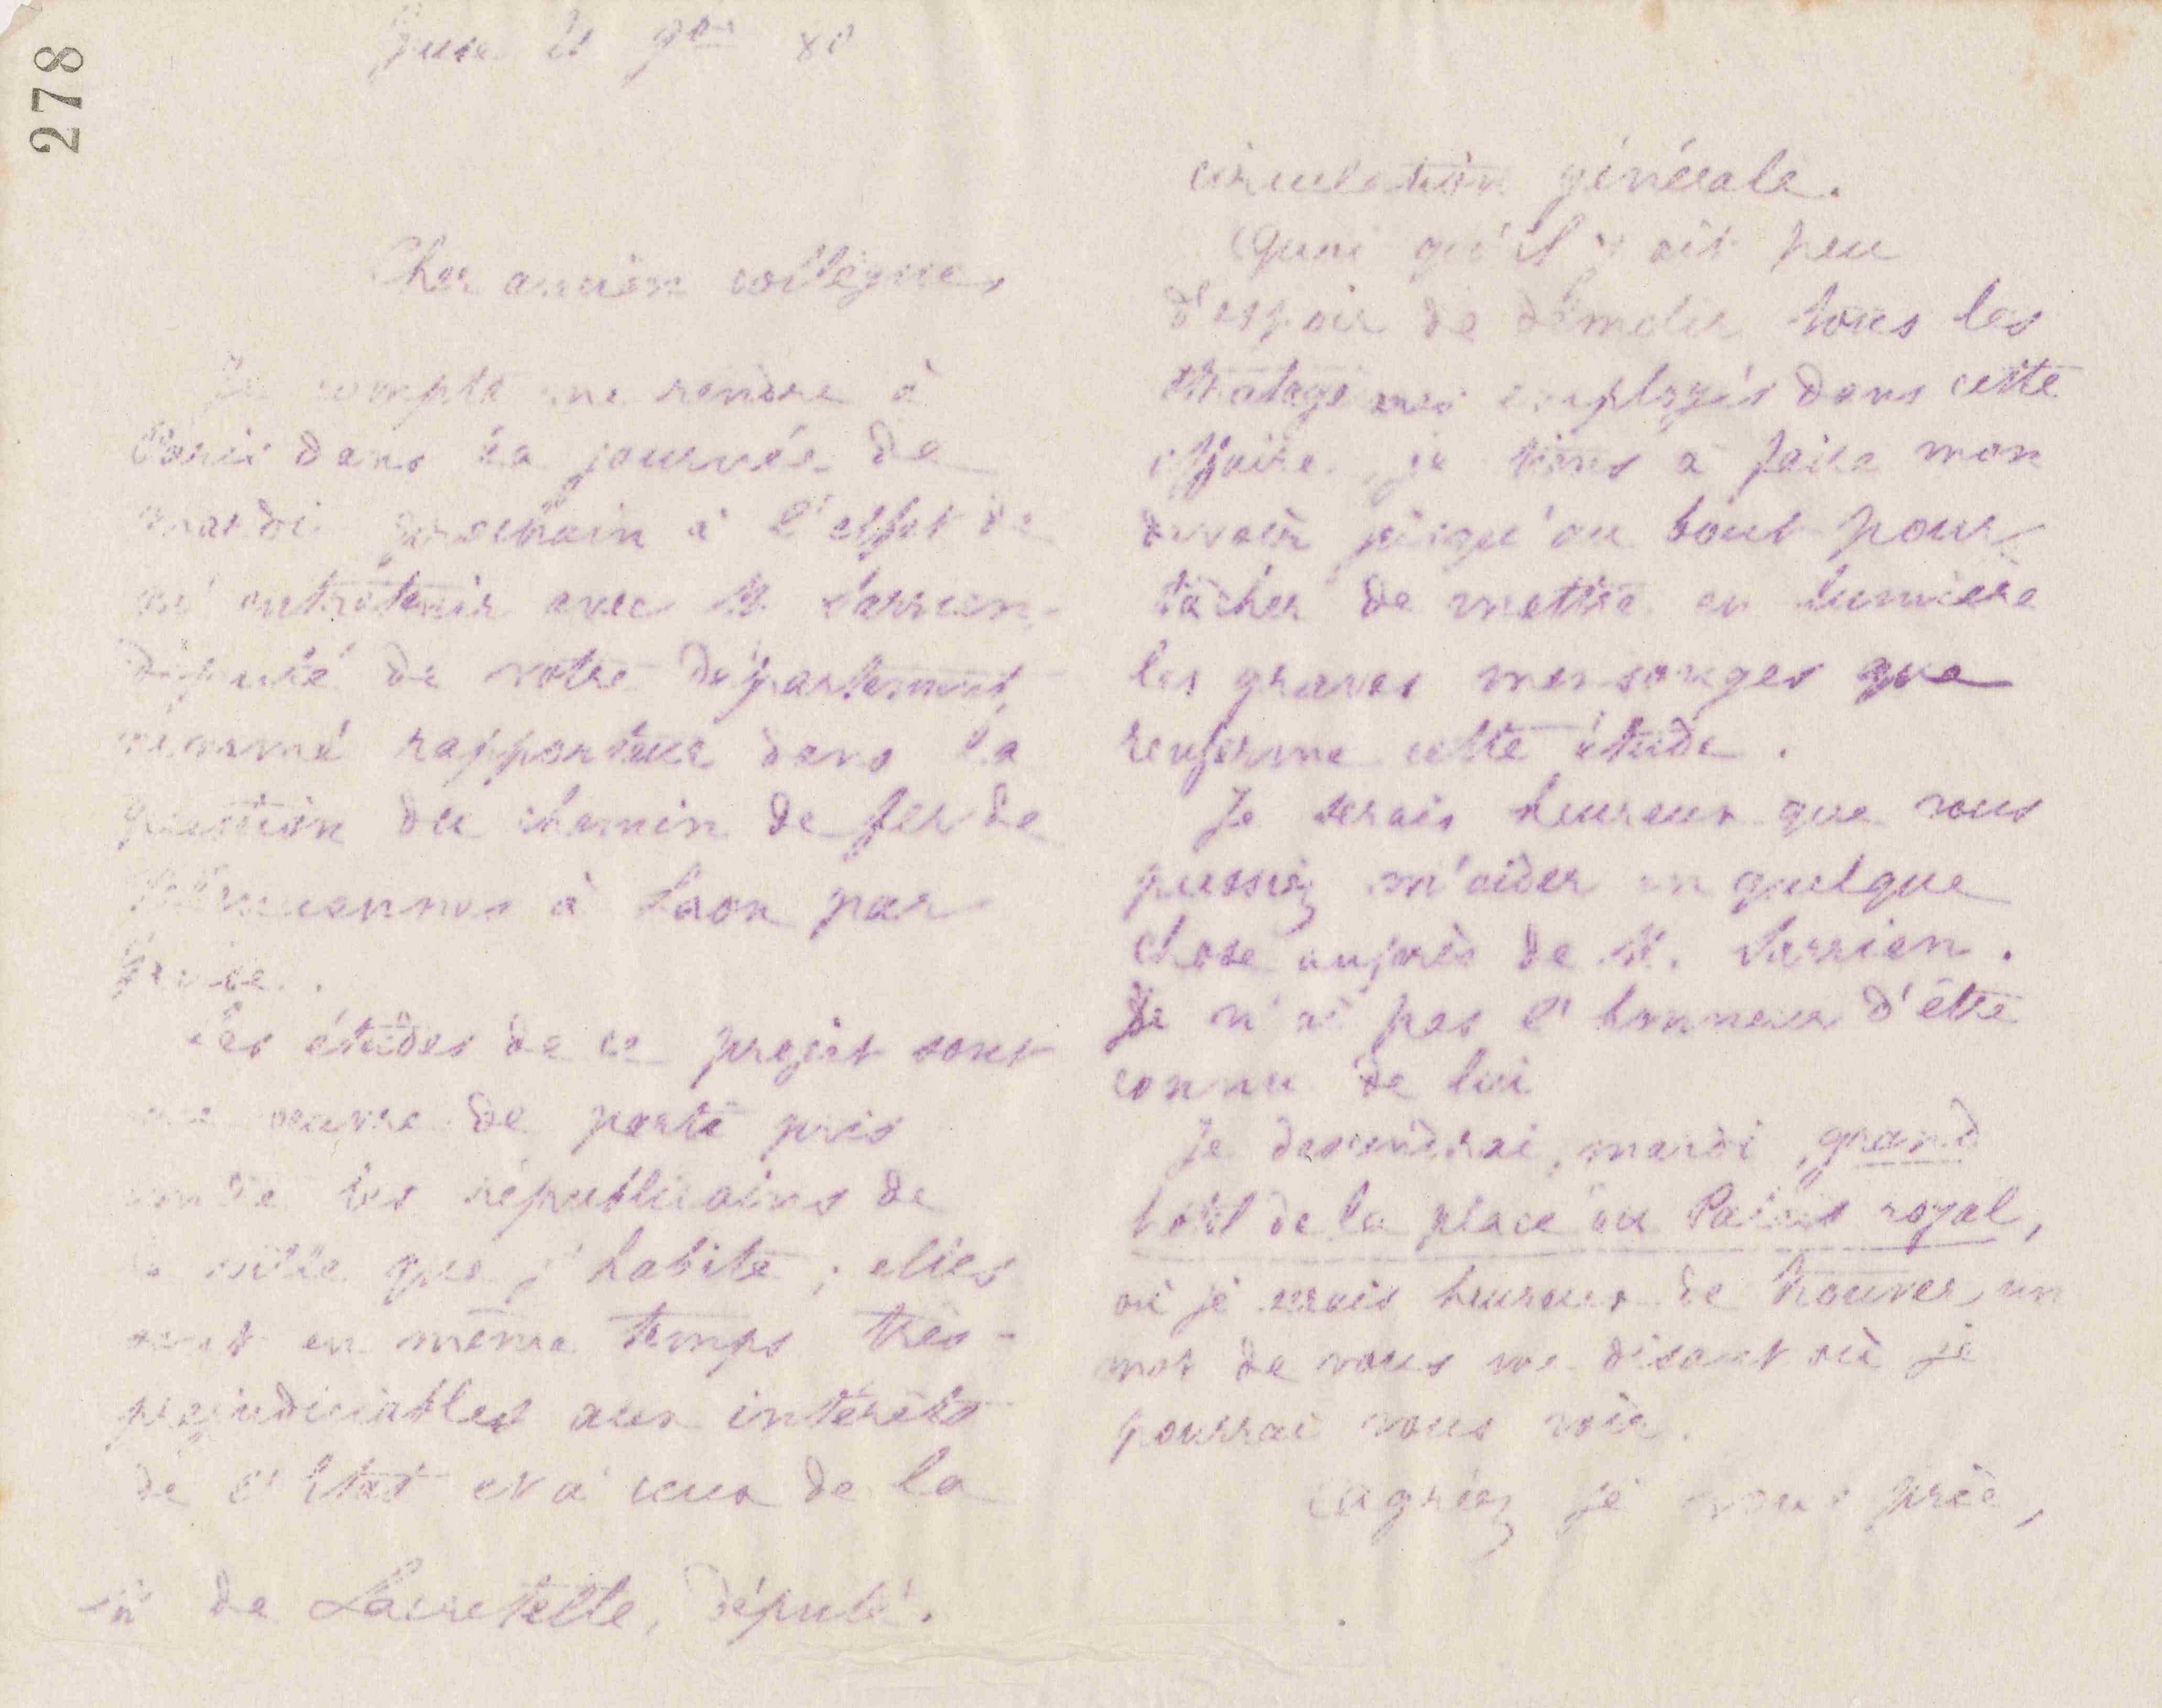 278
Guise 21 9bre 80
Cher ancien collègue,
Je compte me rendre à
Paris dans la journée de
mardi prochain à l'effet de
m'entretenir avec M. Sarrien,
député de votre département,
nommé rapporteur dans la
question du chemin de fer de
Valenciennes à Laon par
Guise.
Les études de ce projet sont
une oeuvre de parti pris
contre les républicains de
la ville que j'habite ; elles
sont en même temps très-
préjudiciables aux intérêts
de l'Etat et à ceux de la
circulation générale.
Quoi qu'il y ait peu
d'espoir de démolir tous les
employés dans cette
affaire je tiens à faire mon
devoir jusqu'au bout pour
tâcher de mettre en lumière
les graves mensonges que
renferme cette étude.
Je serais heureux que vous
pussiez m'aider en quelque
chose auprès de M. Sarrien.
Je n'ai pas l'honneur d'être
connu de lui
Je descendrai, mardi, grand
hôtel de la place du Palais royal,
où je serais heureux de trouver un
mot de vous me disant où je
pourrai vous voir.
Agréez je vous prie,
de Lacretelle, député.